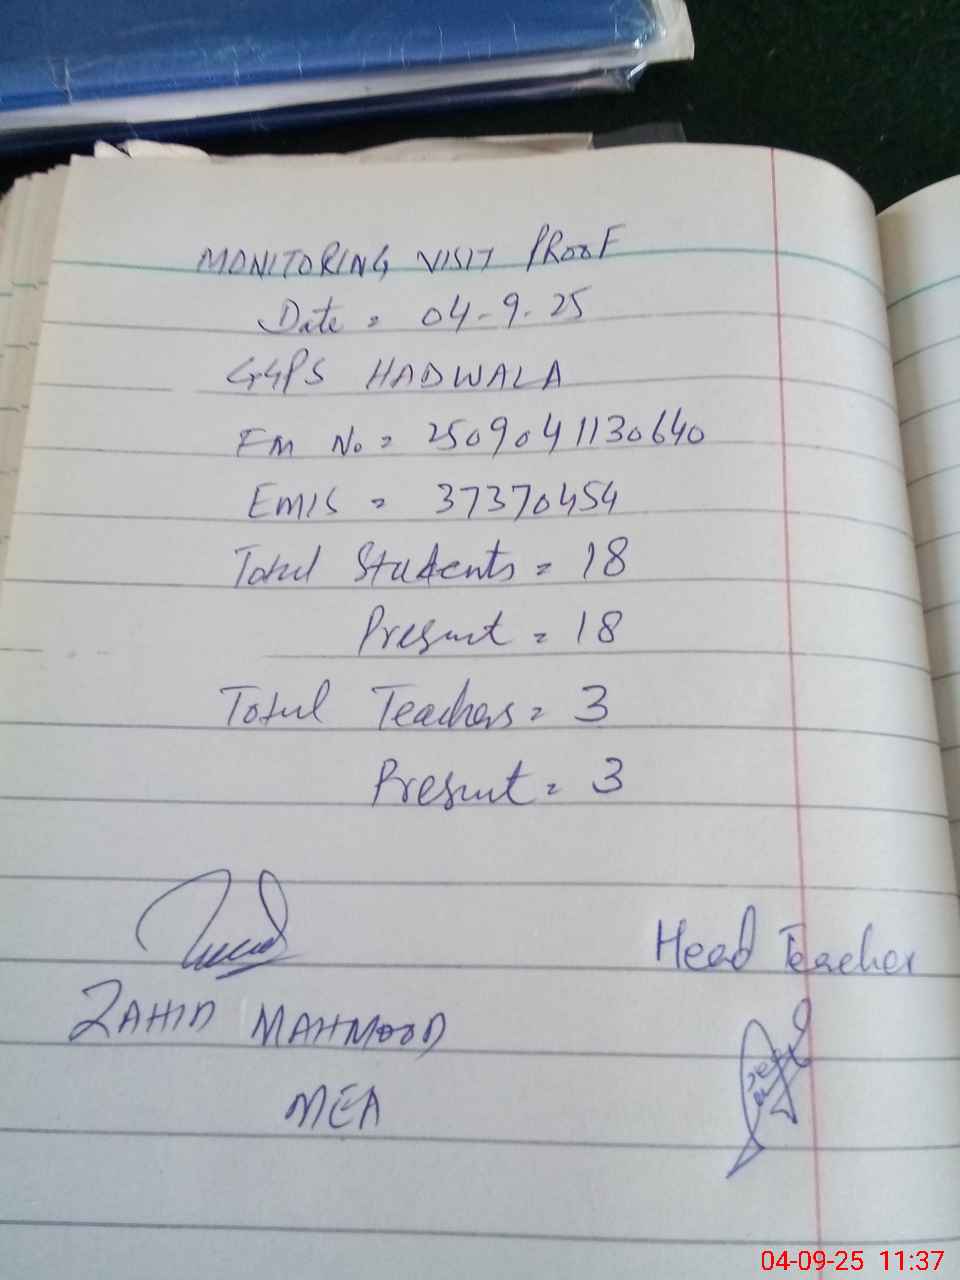 MONITORING VISIT PROOF
Date = 04-9-25
GGPS HADWALA
FM No = 2509041130640
EMIS = 37370454
Total Students = 18
Present = 18
Total Teachers = 3
Present = 3
Head Teacher
ZAHID MAHMOOD
MEA
04-09-25 11:37